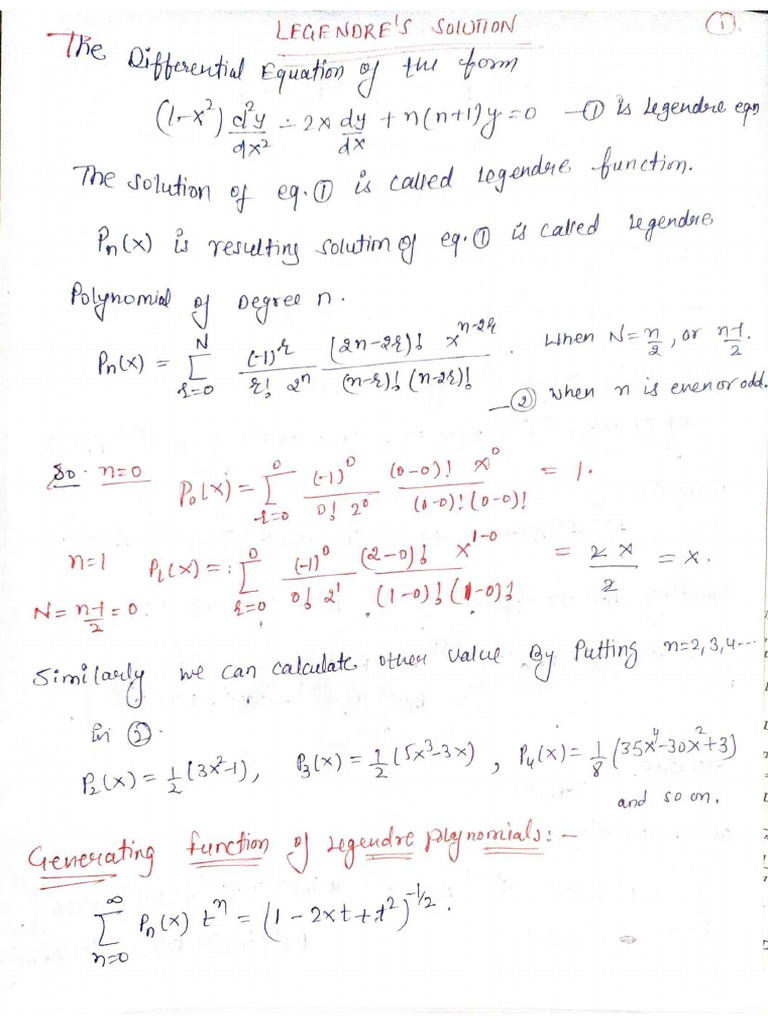 LEGENDRE'S SOLUTION ①
The Differential Equation of the form
(1-x²) d²y/dx² - 2x dy/dx + n(n+1)y = 0 —① is Legendre eqn
The solution of eq.① is called Legendre function.
Pn(x) is resulting solution of eq.① is called Legendre
Polynomial of Degree n.
Pn(x) = Σ_{r=0}^{N} (-1)^r / (r! 2^n) (2n-2r)! x^{n-2r} / ((n-r)! (n-2r)!) . When N = n/2, or (n-1)/2.
—② when n is even or odd.
So. n=0 P₀(x) = Σ_{r=0}^{0} (-1)^0 / (0! 2^0) (0-0)! x^0 / ((0-0)! (0-0)!) = 1.
n=1 P₁(x) = : Σ_{r=0}^{0} (-1)^0 / (0! 2^1) (2-0)! x^{1-0} / ((1-0)! (1-0)!) = 2x/2 = x.
N = (n-1)/2 = 0.
Similarly we can calculate other value By Putting n=2,3,4---
in ②.
P₂(x) = 1/2 (3x²-1), P₃(x) = 1/2 (5x³-3x), P₄(x) = 1/8 (35x⁴-30x²+3)
and so on.
Generating function of Legendre polynomials:-
Σ_{n=0}^{∞} Pn(x) t^n = (1-2xt+t²)^{-1/2}.